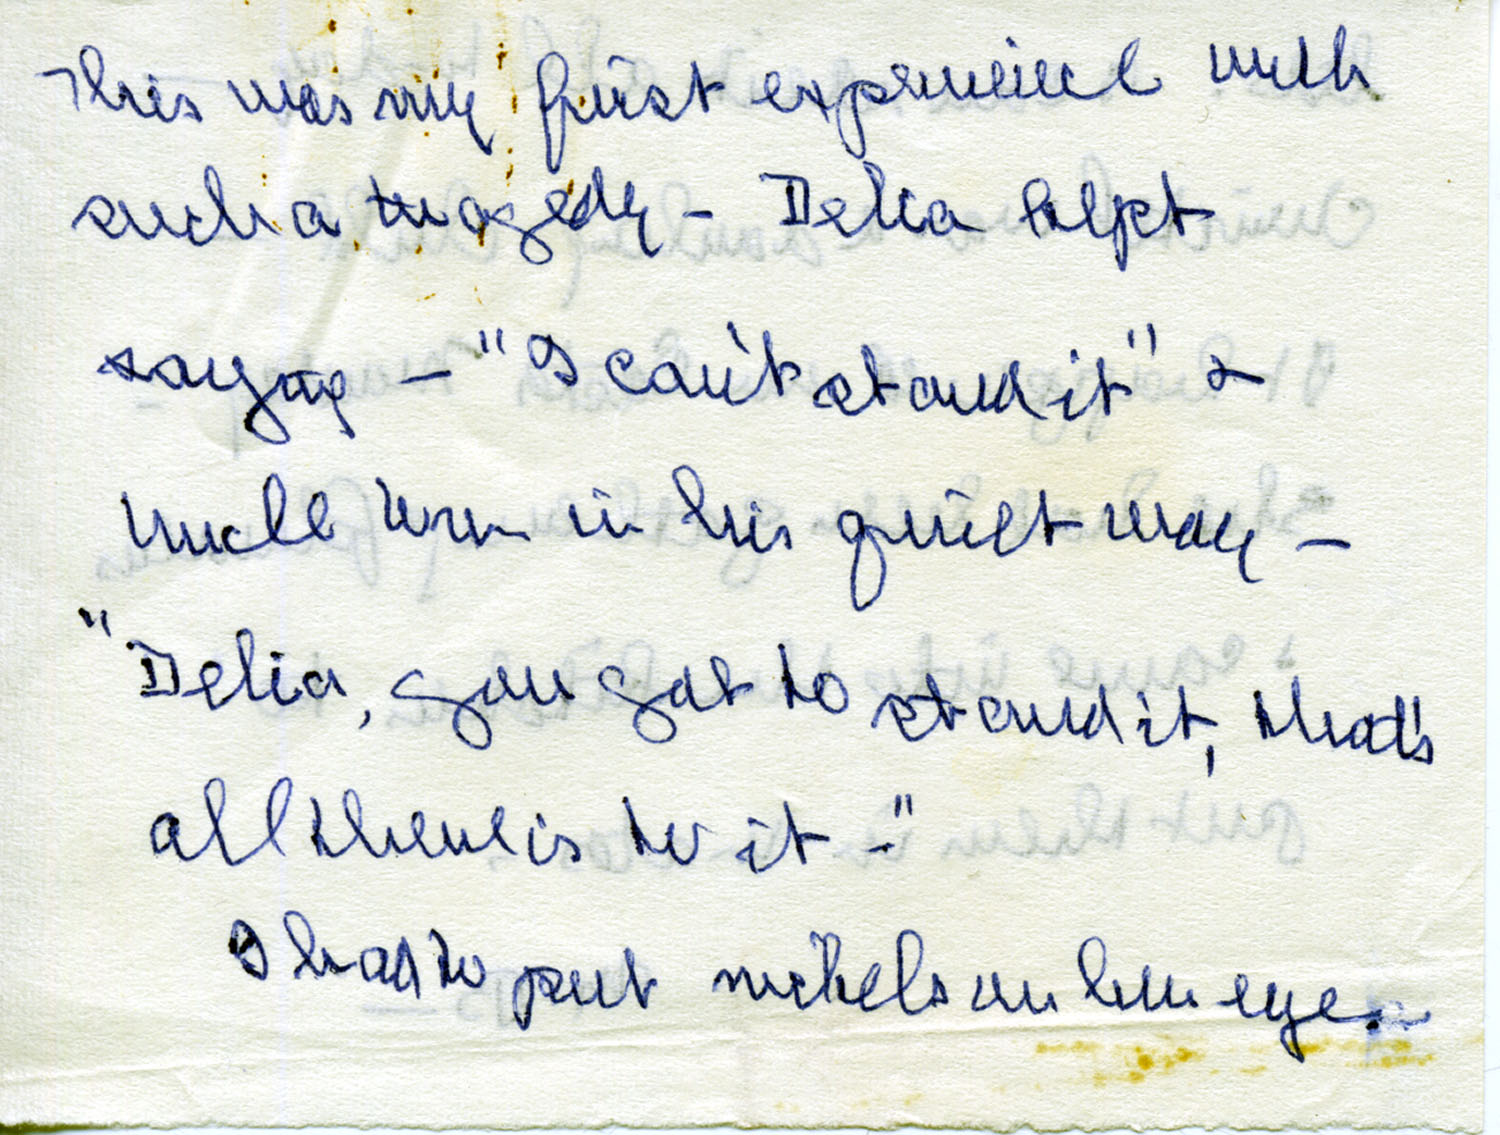 This was my first experience with
such a tragedy - Delia kept
saying - "I can't stand it" &
Uncle in his quiet way -
"Delia, you got to stand it, that's
all there is to it -"
I had to put nickels on her eye.